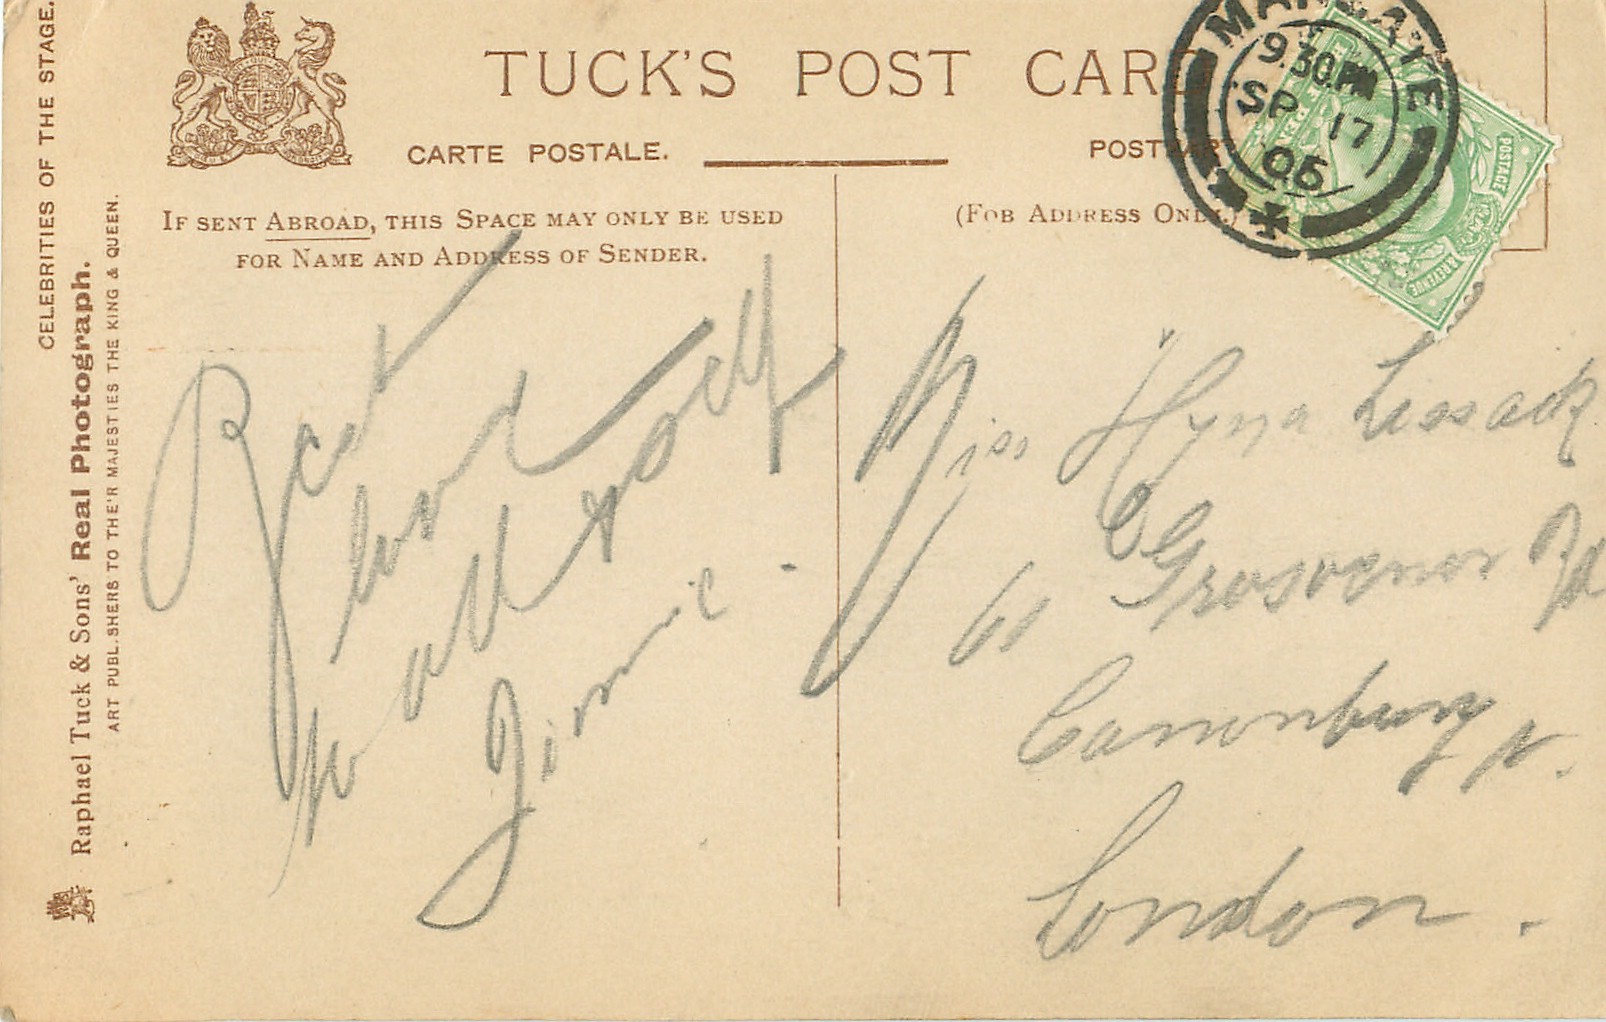 CELEBRITIES OF THE STAGE.
Raphael Tuck & Sons' Real Photograph.
ART PUBLISHERS TO THEIR MAJESTIES THE KING & QUEEN.
TUCK'S POST CARD
CARTE POSTALE.
POST
IF SENT ABROAD, THIS SPACE MAY ONLY BE USED
FOR NAME AND ADDRESS OF SENDER.
(FOR ADDRESS ONLY.)
MARGATE
9.30.PM
SP 17
06
POSTAGE
& REVENUE
Best
love
to all & self
Jimmie
Miss Hyna Lissack
61 Grosvenor Rd
Canonbury N.
London.